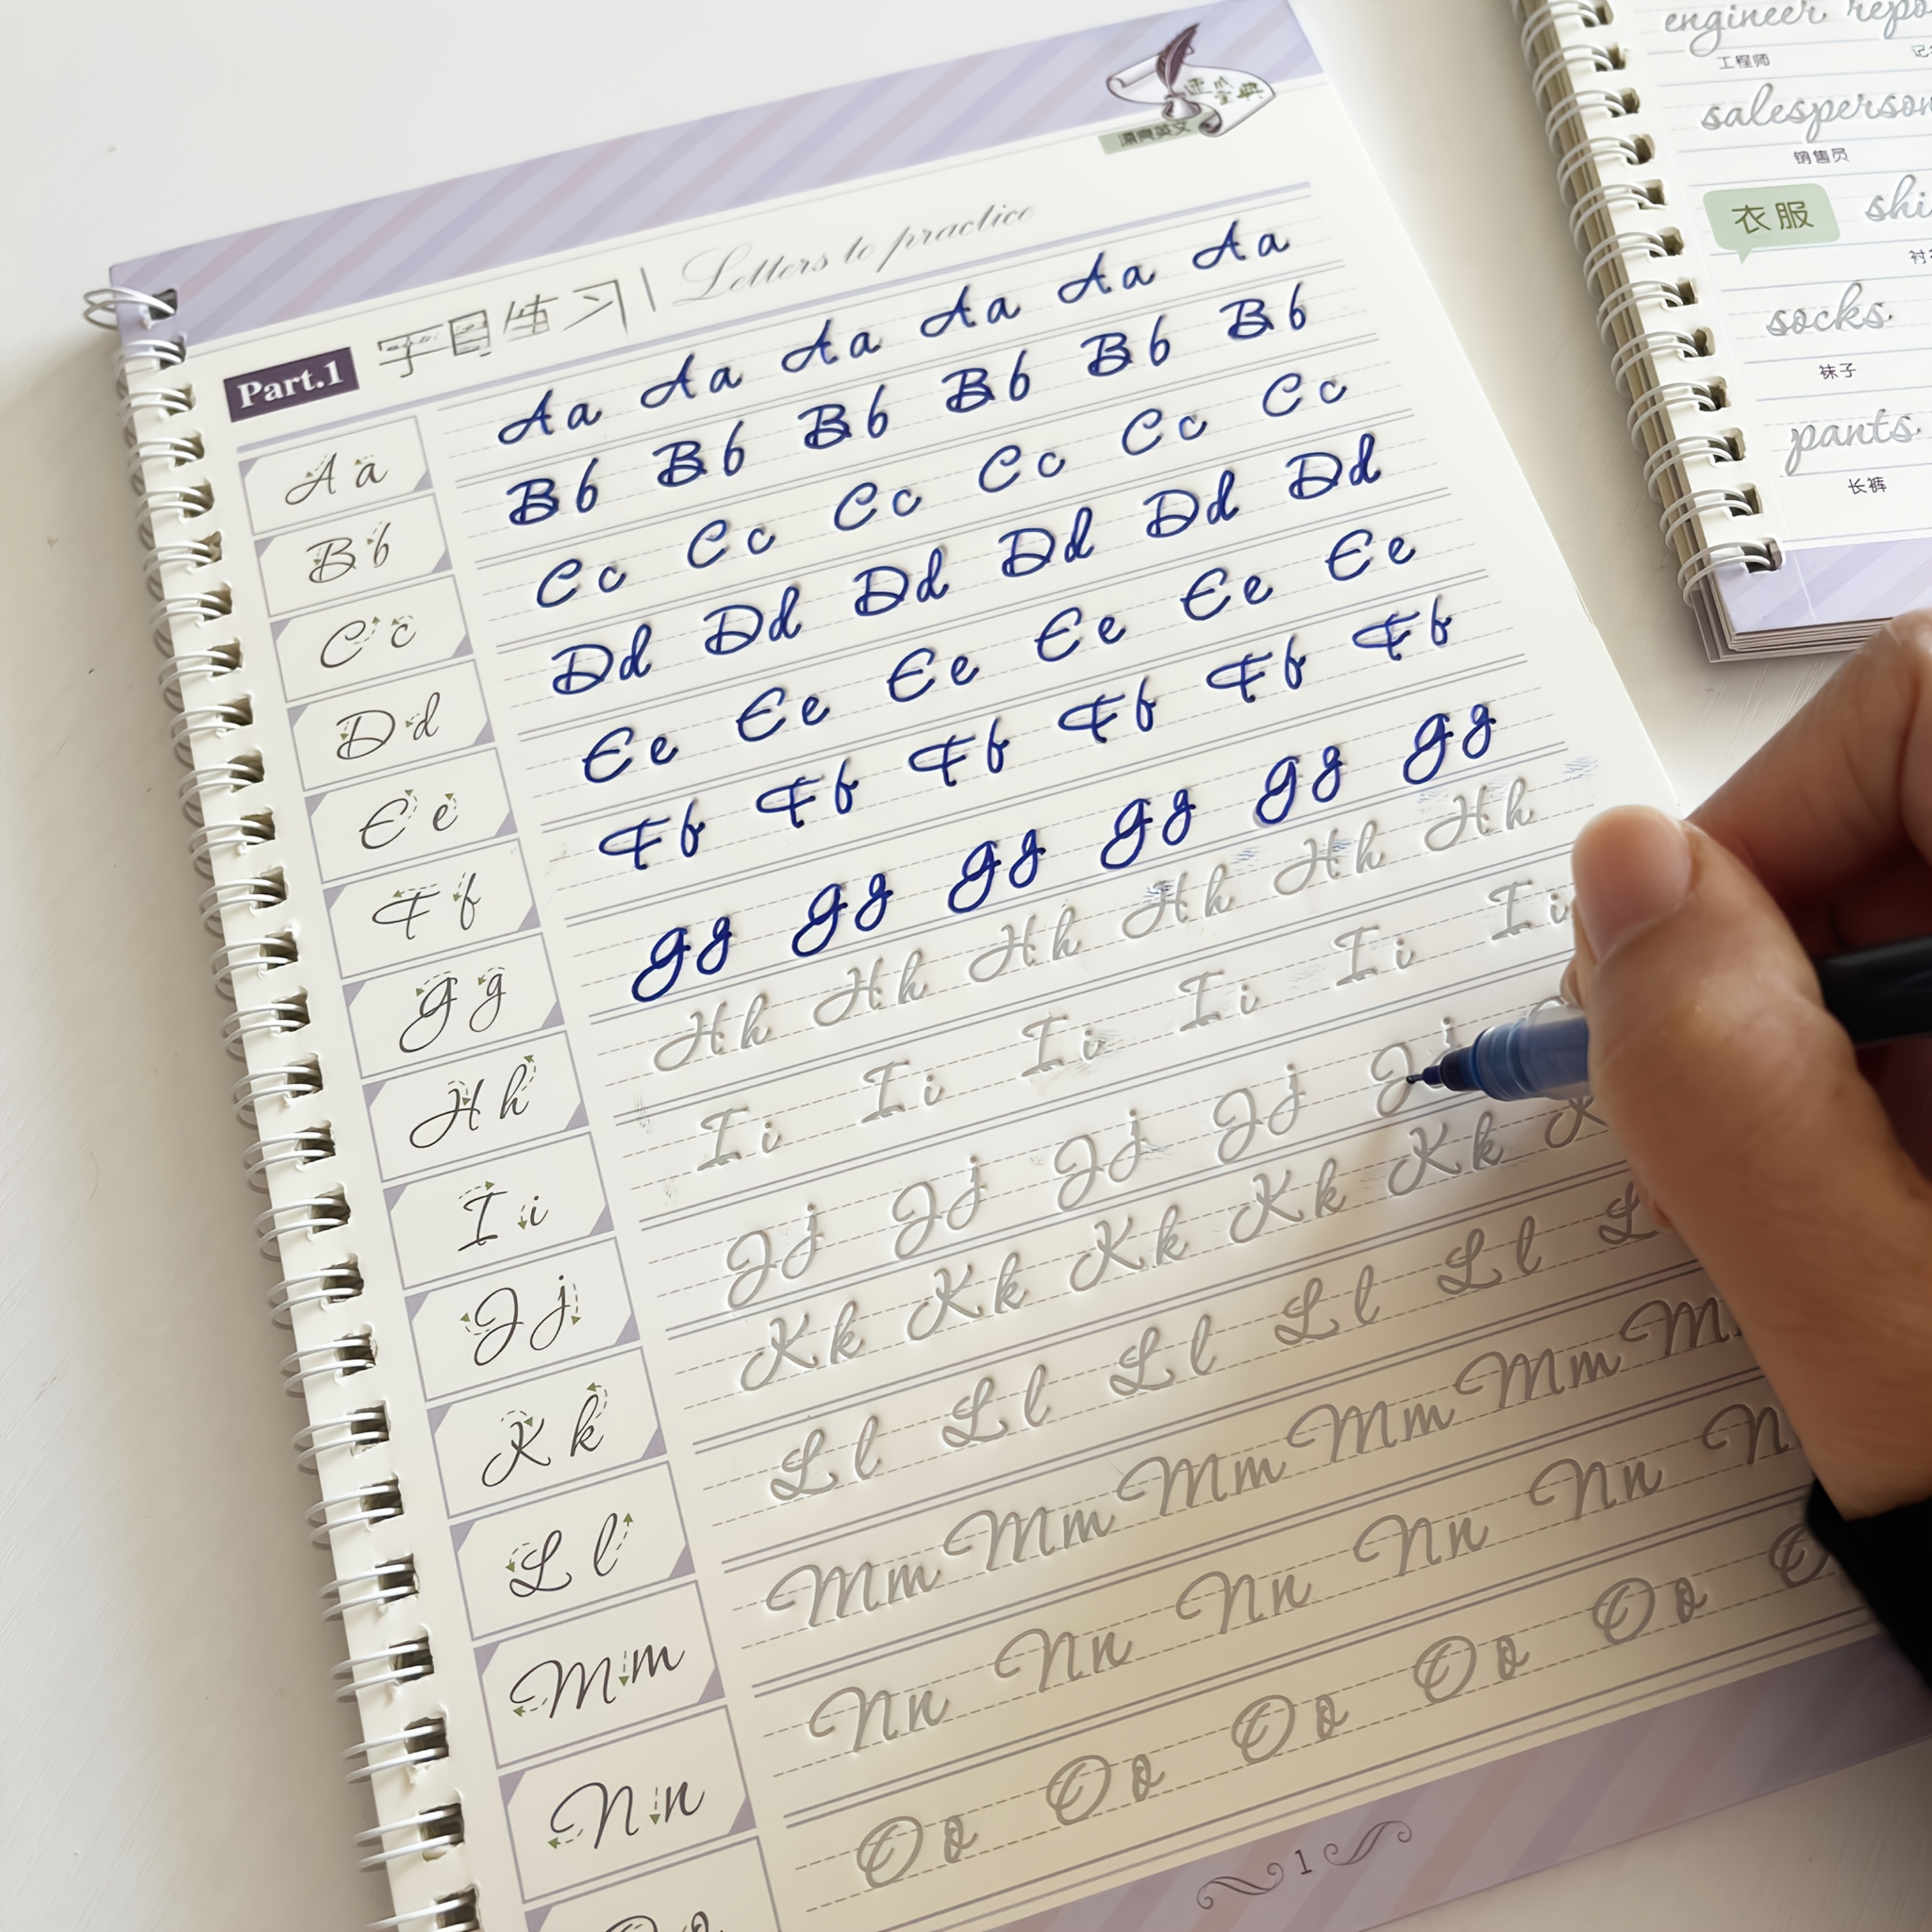 Part.1 | Letters to practice
A a Aa Aa Aa Aa Aa Aa
B b Bb Bb Bb Bb Bb Bb
C c Cc Cc Cc Cc Cc Cc
D d Dd Dd Dd Dd Dd Dd
E e Ee Ee Ee Ee Ee Ee
F f Ff Ff Ff Ff Ff Ff
G g Gg Gg Gg Gg Gg Gg
H h Hh Hh Hh Hh Hh Hh
I i Ii Ii Ii Ii Ii Ii
J j Jj Jj Jj Jj Jj
K k Kk Kk Kk Kk Kk K
L l Ll Ll Ll Ll Ll L
M m Mm Mm Mm Mm Mm M
N n Nn Nn Nn Nn Nn N
Oo Oo Oo Oo Oo O
1
engineer
工程师
salesperson
销售员
衣服
socks
袜子
pants
长裤